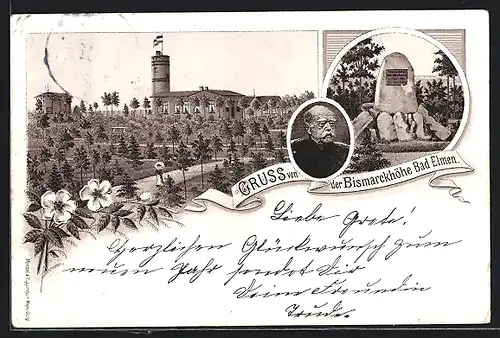 GRUSS von der Bismarckhöhe Bad Elmen.
Liebe Grete!
Herzlichen Glückwunsch zum
neuen Jahr sendet Dir
Deine Freundin
Trude.